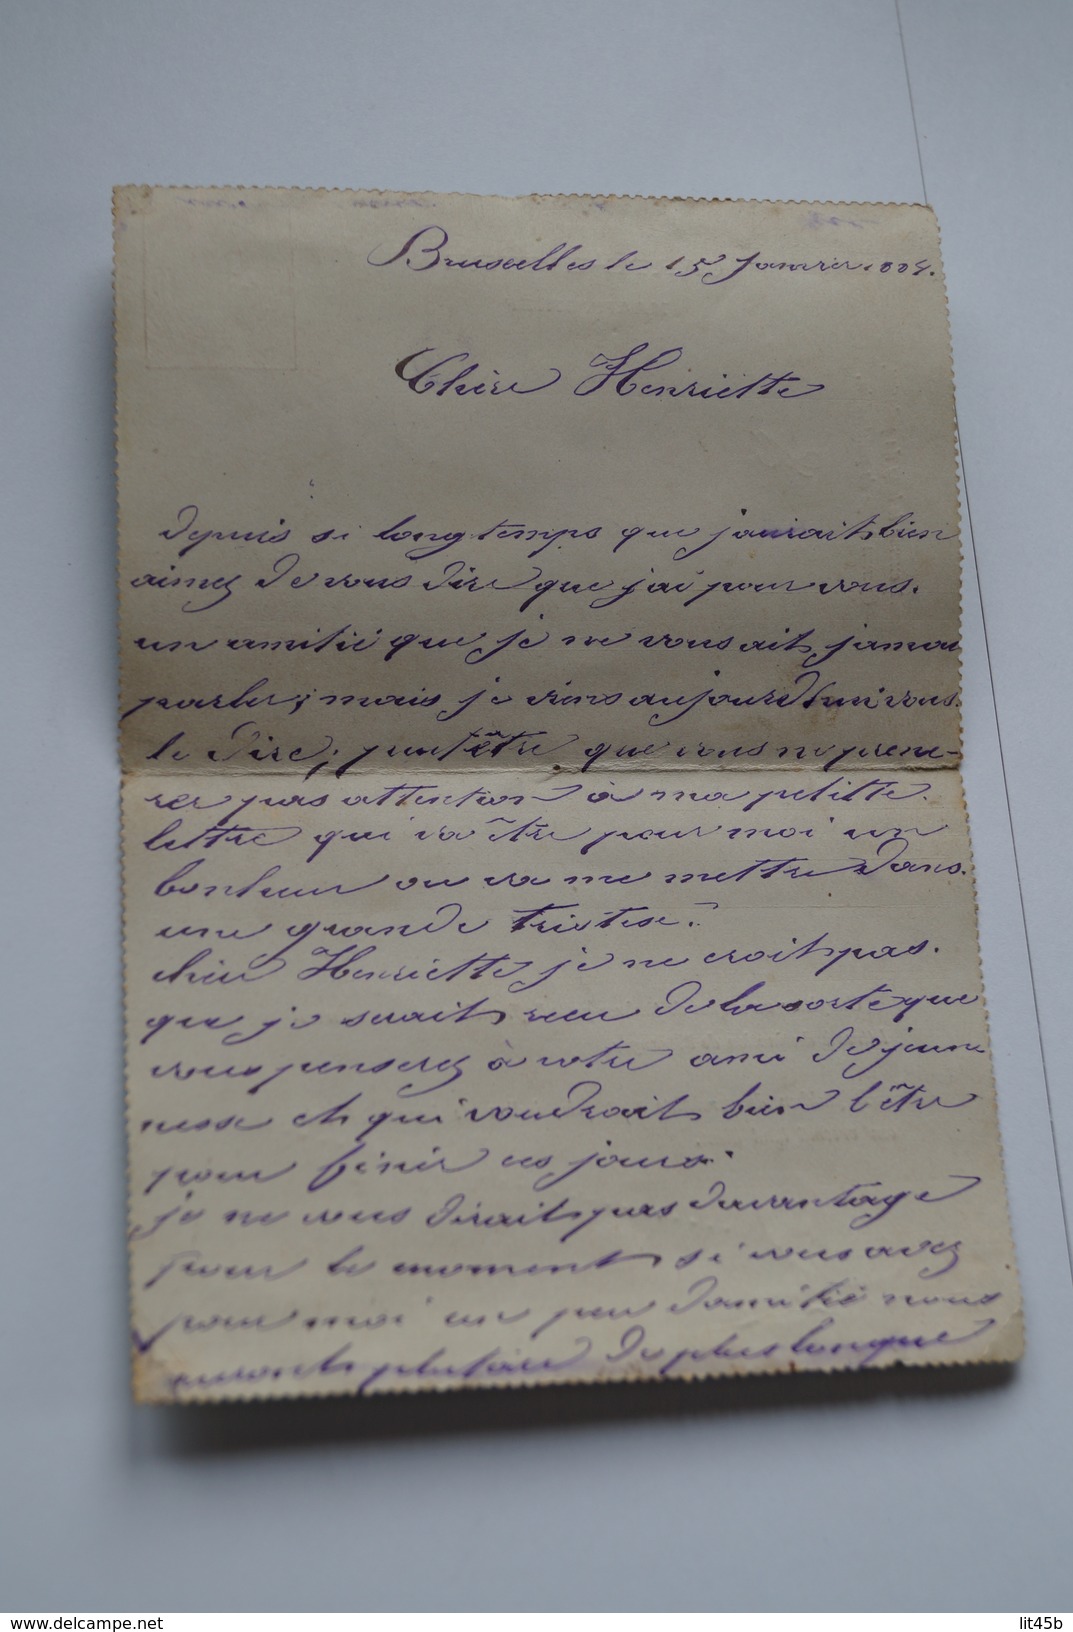 Bruxelles le 15 Janvier 1884.
Chère Henriette
Depuis si longtemps que j'aurait bien
aimez de vous dire que j'ai pour vous.
un amitié que je ne vous ait jamai
parler; mais je viens aujourd'hui vous.
le dire; peut être que vous ne pren-
rer pas attention à ma petitte.
lettre qui va être pour moi un
bonheur ou va me mettre dans.
une grande tristese.
cher Henriette je ne croit pas.
que je serait reçu de la sorte que
vous penserez à votre ami de jeune
nesse et qui voudrait bien l'être
pour finir ces jours.
je ne vous dirait pas davantage
pour le moment si vous avez
pour moi un peu d'amitié nous
auront plutard de plus longue
www.delcampe.net
lit45b